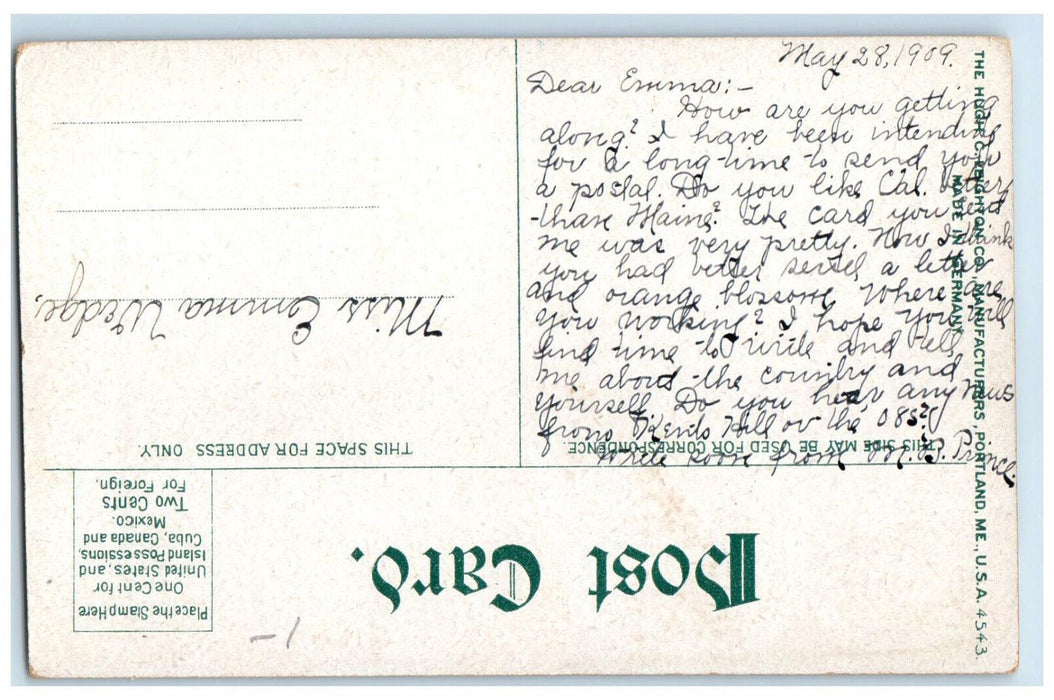 May 28, 1909.
Dear Emma:-
How are you getting
along? I have been intending
for a long time to send you
a postal. Do you like Cal. better
than Maine? The card you sent
me was very pretty. Now I think
you had better send a letter
and orange blossoms. Where are
you working? I hope you will
find time to write and tell
me about the country and
yourself. Do you hear any news
from Kents Hill or the
Write soon from M. B. Prince.
Miss Emma Wedge,
THIS SPACE FOR ADDRESS ONLY.
THIS SIDE MAY BE USED FOR CORRESPONDENCE.
Post Card.
Place the Stamp Here
One Cent for
United States, and
Island Possessions,
Cuba, Canada and
Mexico.
Two Cents
For Foreign.
1-
THE HUGH C. LEIGHTON CO., MANUFACTURERS, PORTLAND, ME., U.S.A. 4543.
MADE IN GERMANY